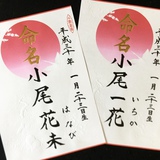 平成三十年
一月二十二日生
いろか
命名 小尾一花
平成三十年
一月二十二日生
はなび
命名 小尾花未